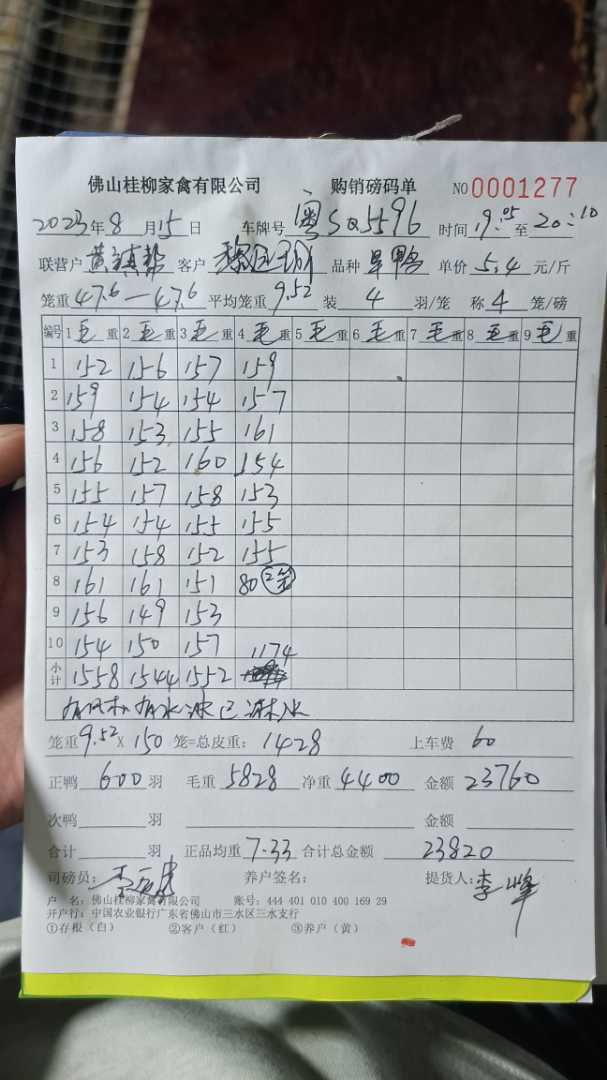 佛山桂柳家禽有限公司 购销磅码单 NO 0001277
2023年8月15日 车牌号 粤SQ5596 时间 19:05 至 20:10
联营户 黄镇 客户 黎 品种 旱鸭 单价 5.4 元/斤
笼重 47.6—47.6 平均笼重 9.52 装 4 羽/笼 称 4 笼/磅
编号 1毛重 2毛重 3毛重 4毛重 5毛重 6毛重 7毛重 8毛重 9毛重
1 152 156 157 159
2 159 154 154 157
3 158 153 155 161
4 156 152 160 154
5 155 157 158 153
6 154 154 155 155
7 153 158 152 155
8 161 161 151 80 2笼
9 156 149 153
10 154 150 157 1174
小计 1558 1544 1552
有风机有水 已淋水
笼重 9.52 X 150 笼=总皮重: 1428 上车费 60
正鸭 600 羽 毛重 5828 净重 4400 金额 23760
次鸭 羽 金额
合计 羽 正品均重 7.33 合计总金额 23820
司磅员: 李 养户签名: 提货人: 李峰
户 名: 佛山桂柳家禽有限公司 账号: 444 401 010 400 169 29
开户行: 中国农业银行广东省佛山市三水区三水支行
①存根(白) ②客户(红) ③养户(黄)